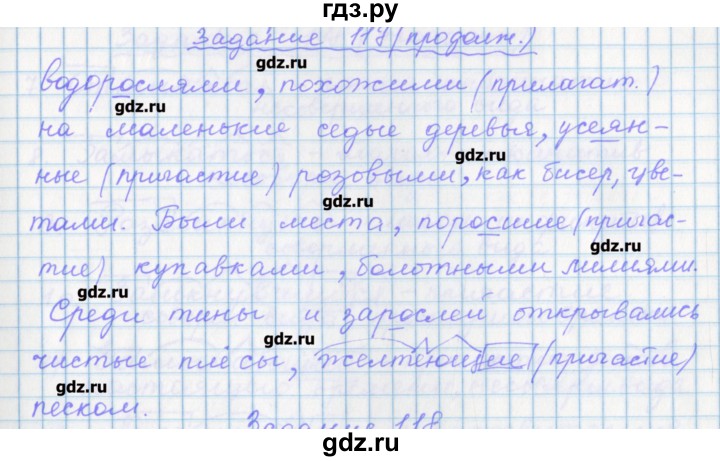 гдз.ру
Задание 117 (продолж.)
gdz.ru
водорослями, похожими (прилагат.)
gdz.ru
на маленькие седые деревья, усеян-
gdz.ru
ные (причастие) розовыми, как бисер, цве-
gdz.ru
тами. Были места, поросшие (причас-
gdz.ru
тие) купавками, болотными лилиями.
gdz.ru
Среди тины и зарослей открывались
gdz.ru
чистые плёсы, желтеющие (причастие)
gdz.ru
песком.
Задание 118
gdz.ru